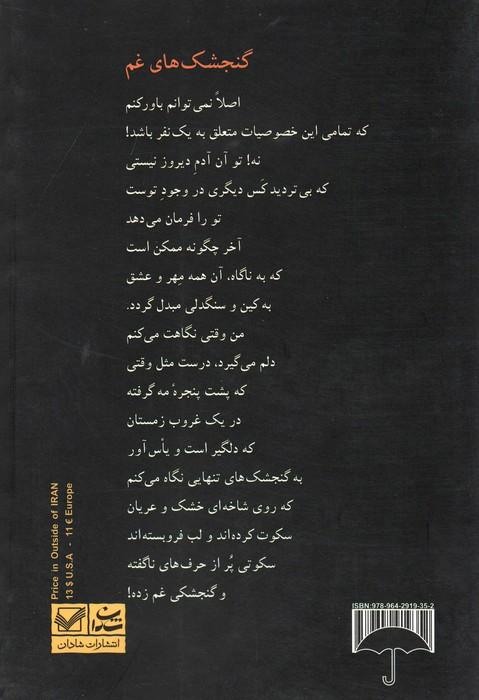 گنجشک‌های غم
اصلاً نمی‌توانم باورکنم
که تمامی این خصوصیات متعلق به یک‌نفر باشد!
نه! تو آن آدمِ دیروز نیستی
که بی‌تردید کَس دیگری در وجودِ توست
تو را فرمان می‌دهد
آخر چگونه ممکن است
که به ناگاه، آن همه مِهر و عشق
به کین و سنگدلی مبدل گردد.
من وقتی نگاهت می‌کنم
دلم می‌گیرد، درست مثل وقتی
که پشت پنجرهٔ مه گرفته
در یک غروب زمستان
که دلگیر است و یأس‌آور
به گنجشک‌های تنهایی نگاه می‌کنم
که روی شاخه‌ای خشک و عریان
سکوت کرده‌اند و لب فروبسته‌اند
سکوتی پُر از حرف‌های ناگفته
و گنجشکی غم زده!
Price in Outside of IRAN
13 $ U.S.A - 11 € Europe
شادان
انتشارات شادان
ISBN: 978-964-2919-35-2